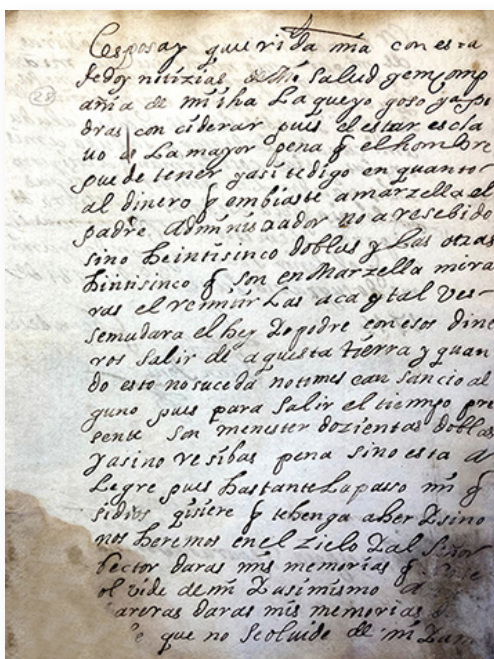 Cesposay querida mia con esta
tedoy nitizias de mi salud yencomp
añia de mi iha La queyo goso yapo
dras con ciderar pues el estar escla
uo es La mayor pena q el hombre
puede tener yasi tedigo en quanto
al dinero q embiaste amarzella el
padre Administrador no a resebido
sino beintisinco doblas y las otras
bintisinco q son en Marzella mira
ras el remitir Las aca y tal ves
semudara el ley Zopodre con esos dine
ros salir de aquesta tierra y quan
do esto no suceda no tomes can sancio al
guno pues para salir el tiempo pre
sente son menester dozientas doblas
yasino resibas pena sino esta a
Legre pues bastante La passo mi q
sidios quisiere q te benga a ber Zsino
nos beremos en el zielo Zal Señor
bector daras mis memorias q
ol vide de mi Zasimismo a
daras mis memorias
que no se oluide de mi